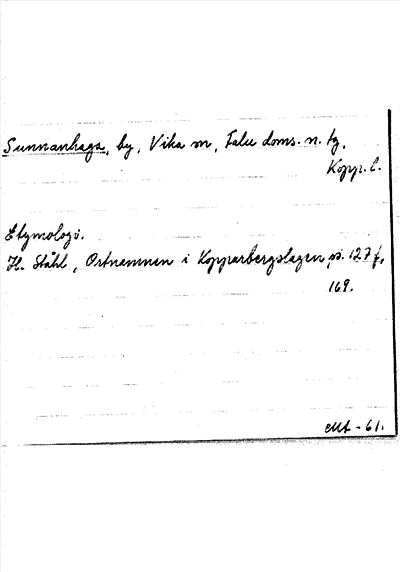 Sunnanhaga, by, Vika sn, Falu doms. n. tg,
Kopp. l.
Etymologi.
H. Ståhl, Ortnamnen i Kopparbergslagen, s. 127 f,
169.
-61.